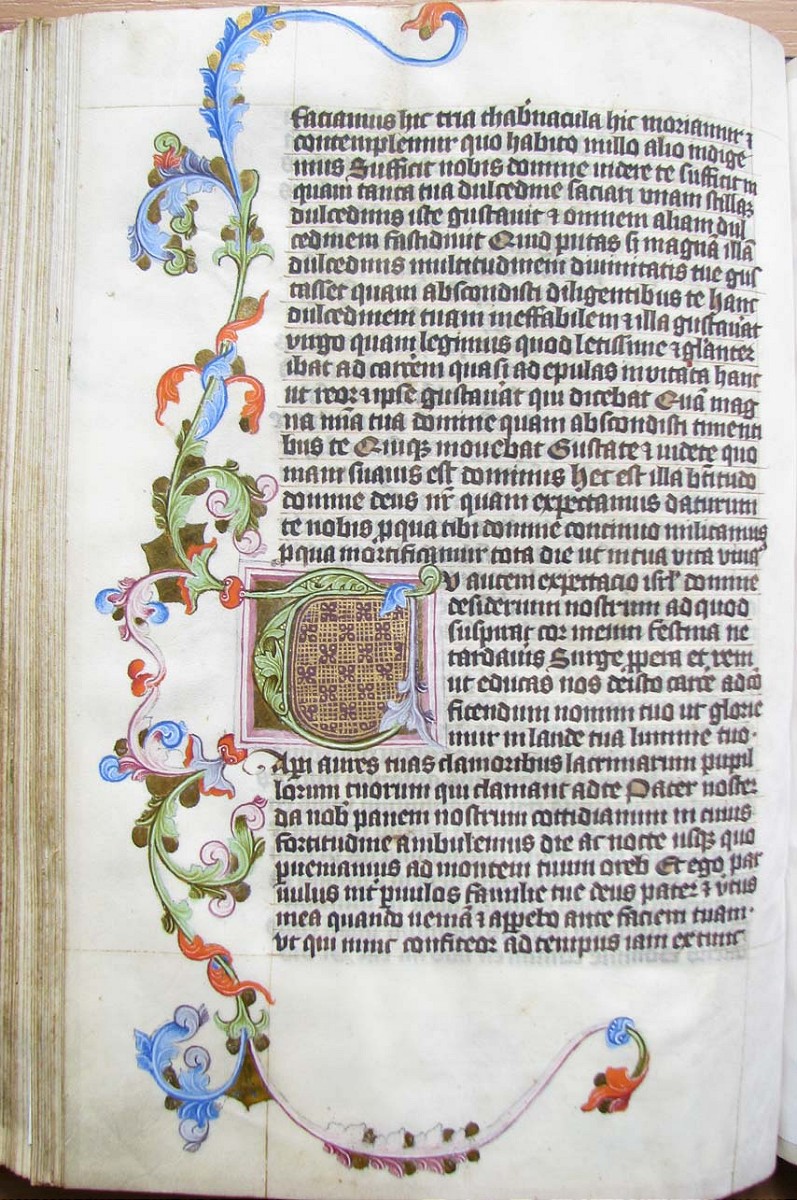 faciamus hic tria thab'nacula hic moriamur ⁊
contemplemur quo habito nullo alio indige
mus Sufficit nobis domine videre te sufficit in
quam tanta tua dulcedine saciari vnam stillaʒ
dulcedinis iste gustauit ⁊ omnem aliam dul
cedinem fastidiuit Quid putas si magnā illā
dulcedinis multitudinem diuinitatis tue gus
tasset quam abscondisti diligentibus te hanc
dulcedinem tuam ineffabilem ⁊ illa gustauat
virgo quam legimus quod letissime ⁊ glanter
ibat ad carcem quasi ad epulas inuitata hanc
ut reor ⁊ ipse gustauat qui dicebat Quā mag
na mīa tua domine quam abscondisti timenti
bus te Quisqʒ mouebat Gustate ⁊ videte quo
niam suauis est dominus Hec est illa btitudo
domine deus nr̄ quam expectamus daturum
te nobis ꝓ qua tibi domine continuo militamus
ꝓ qua mortificamur tota die ut in tua vita viuaꝰ
Tu autem expectacio isrl' domine
desiderium nostrum ad quod
suspirat cor meum festina ne
tardaueris Surge ꝓpera et veni
ut educas nos de isto carce ad cō
fitendum nomini tuo ut glorie
mur in laude tua lumine tuo.
Apri aures tuas clamoribus lacrimarum pupil
lorum tuorum qui clamant ad te Pater noster
da nob' panem nostrum cottidianum in cuius
fortitudine ambulemus die ac nocte usqʒ quo
pueniamus ad montem tuum oreb Et ego par
uulus int' puulos familie tue deus pater ⁊ vtus
mea quando ueniā ⁊ appebo ante faciem tuam.
vt qui nunc confiteor ad tempus iam ex tunc